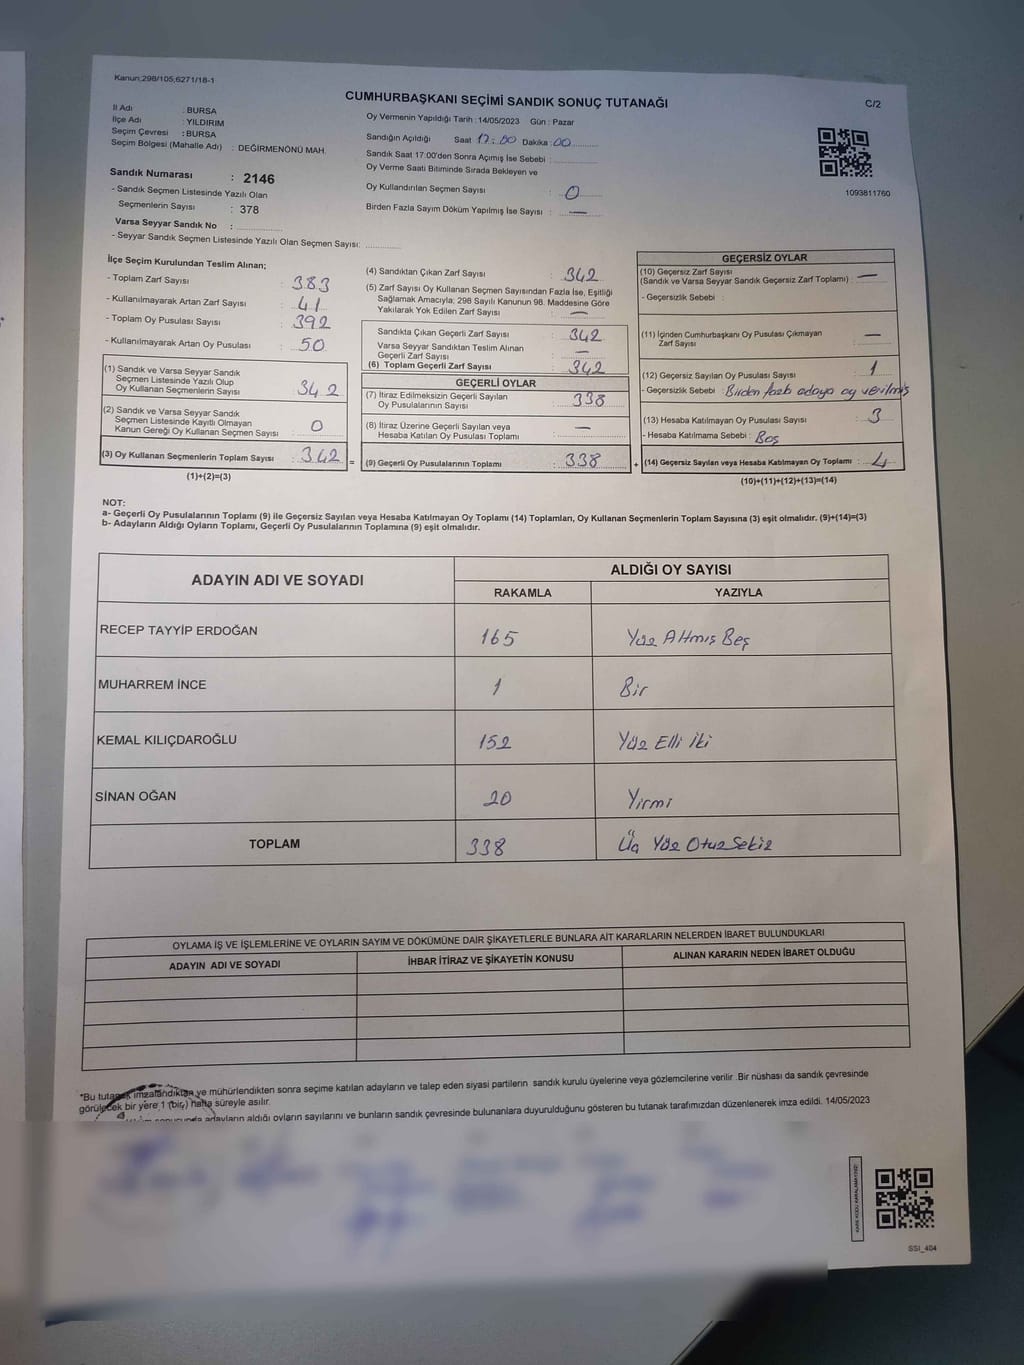 Kanun;298/105,6271/18-1
CUMHURBAŞKANI SEÇİMİ SANDIK SONUÇ TUTANAĞI
C/2
İl Adı : BURSA
İlçe Adı : YILDIRIM
Seçim Çevresi : BURSA
Seçim Bölgesi (Mahalle Adı) : DEĞİRMENÖNÜ MAH.
Oy Vermenin Yapıldığı Tarih : 14/05/2023 Gün : Pazar
Sandığın Açıldığı Saat 17:00 Dakika : 00
Sandık Saat 17:00'den Sonra Açımış İse Sebebi :
Oy Verme Saati Bitiminde Sırada Bekleyen ve
Oy Kullandırılan Seçmen Sayısı : 0
Birden Fazla Sayım Döküm Yapılmış İse Sayısı : —
1093811760
Sandık Numarası : 2146
- Sandık Seçmen Listesinde Yazılı Olan
Seçmenlerin Sayısı : 378
Varsa Seyyar Sandık No :
- Seyyar Sandık Seçmen Listesinde Yazılı Olan Seçmen Sayısı:
İlçe Seçim Kurulundan Teslim Alınan;
- Toplam Zarf Sayısı : 383
- Kullanılmayarak Artan Zarf Sayısı : 41
- Toplam Oy Pusulası Sayısı : 392
- Kullanılmayarak Artan Oy Pusulası : 50
(1) Sandık ve Varsa Seyyar Sandık
Seçmen Listesinde Yazılı Olup
Oy Kullanan Seçmenlerin Sayısı : 342
(2) Sandık ve Varsa Seyyar Sandık
Seçmen Listesinde Kayıtlı Olmayan
Kanun Gereği Oy Kullanan Seçmen Sayısı : 0
(3) Oy Kullanan Seçmenlerin Toplam Sayısı : 342 =
(1)+(2)=(3)
(4) Sandıktan Çıkan Zarf Sayısı : 342
(5) Zarf Sayısı Oy Kullanan Seçmen Sayısından Fazla İse, Eşitliği
Sağlamak Amacıyla; 298 Sayılı Kanunun 98. Maddesine Göre
Yakılarak Yok Edilen Zarf Sayısı : —
Sandıkta Çıkan Geçerli Zarf Sayısı : 342
Varsa Seyyar Sandıktan Teslim Alınan
Geçerli Zarf Sayısı : —
(6) Toplam Geçerli Zarf Sayısı : 342
GEÇERLİ OYLAR
(7) İtiraz Edilmeksizin Geçerli Sayılan
Oy Pusulalarının Sayısı : 338
(8) İtiraz Üzerine Geçerli Sayılan veya
Hesaba Katılan Oy Pusulası Toplamı : —
(9) Geçerli Oy Pusulalarının Toplamı : 338 +
GEÇERSİZ OYLAR
(10) Geçersiz Zarf Sayısı
(Sandık ve Varsa Seyyar Sandık Geçersiz Zarf Toplamı) : —
- Geçersizlik Sebebi :
(11) İçinden Cumhurbaşkanı Oy Pusulası Çıkmayan
Zarf Sayısı : —
(12) Geçersiz Sayılan Oy Pusulası Sayısı : 1
- Geçersizlik Sebebi : Birden fazla adaya oy verilmiş
(13) Hesaba Katılmayan Oy Pusulası Sayısı : 3
- Hesaba Katılmama Sebebi : Boş
(14) Geçersiz Sayılan veya Hesaba Katılmayan Oy Toplamı : 4
(10)+(11)+(12)+(13)=(14)
NOT:
a- Geçerli Oy Pusulalarının Toplamı (9) ile Geçersiz Sayılan veya Hesaba Katılmayan Oy Toplamı (14) Toplamları, Oy Kullanan Seçmenlerin Toplam Sayısına (3) eşit olmalıdır. (9)+(14)=(3)
b- Adayların Aldığı Oyların Toplamı, Geçerli Oy Pusulalarının Toplamına (9) eşit olmalıdır.
ADAYIN ADI VE SOYADI
ALDIĞI OY SAYISI
RAKAMLA YAZIYLA
RECEP TAYYİP ERDOĞAN 165 Yüz Altmış Beş
MUHARREM İNCE 1 Bir
KEMAL KILIÇDAROĞLU 152 Yüz Elli İki
SİNAN OĞAN 20 Yirmi
TOPLAM 338 Üç Yüz Otuz Sekiz
OYLAMA İŞ VE İŞLEMLERİNE VE OYLARIN SAYIM VE DÖKÜMÜNE DAİR ŞİKAYETLERLE BUNLARA AİT KARARLARIN NELERDEN İBARET BULUNDUKLARI
ADAYIN ADI VE SOYADI İHBAR İTİRAZ VE ŞİKAYETİN KONUSU ALINAN KARARIN NEDEN İBARET OLDUĞU
*Bu tutanak imzalandıktan ve mühürlendikten sonra seçime katılan adayların ve talep eden siyasi partilerin sandık kurulu üyelerine veya gözlemcilerine verilir .Bir nüshası da sandık çevresinde
görülecek bir yere 1 (bir) hafta süreyle asılır.
adayların aldığı oyların sayılarını ve bunların sandık çevresinde bulunanlara duyurulduğunu gösteren bu tutanak tarafımızdan düzenlenerek imza edildi. 14/05/2023
SSI_404